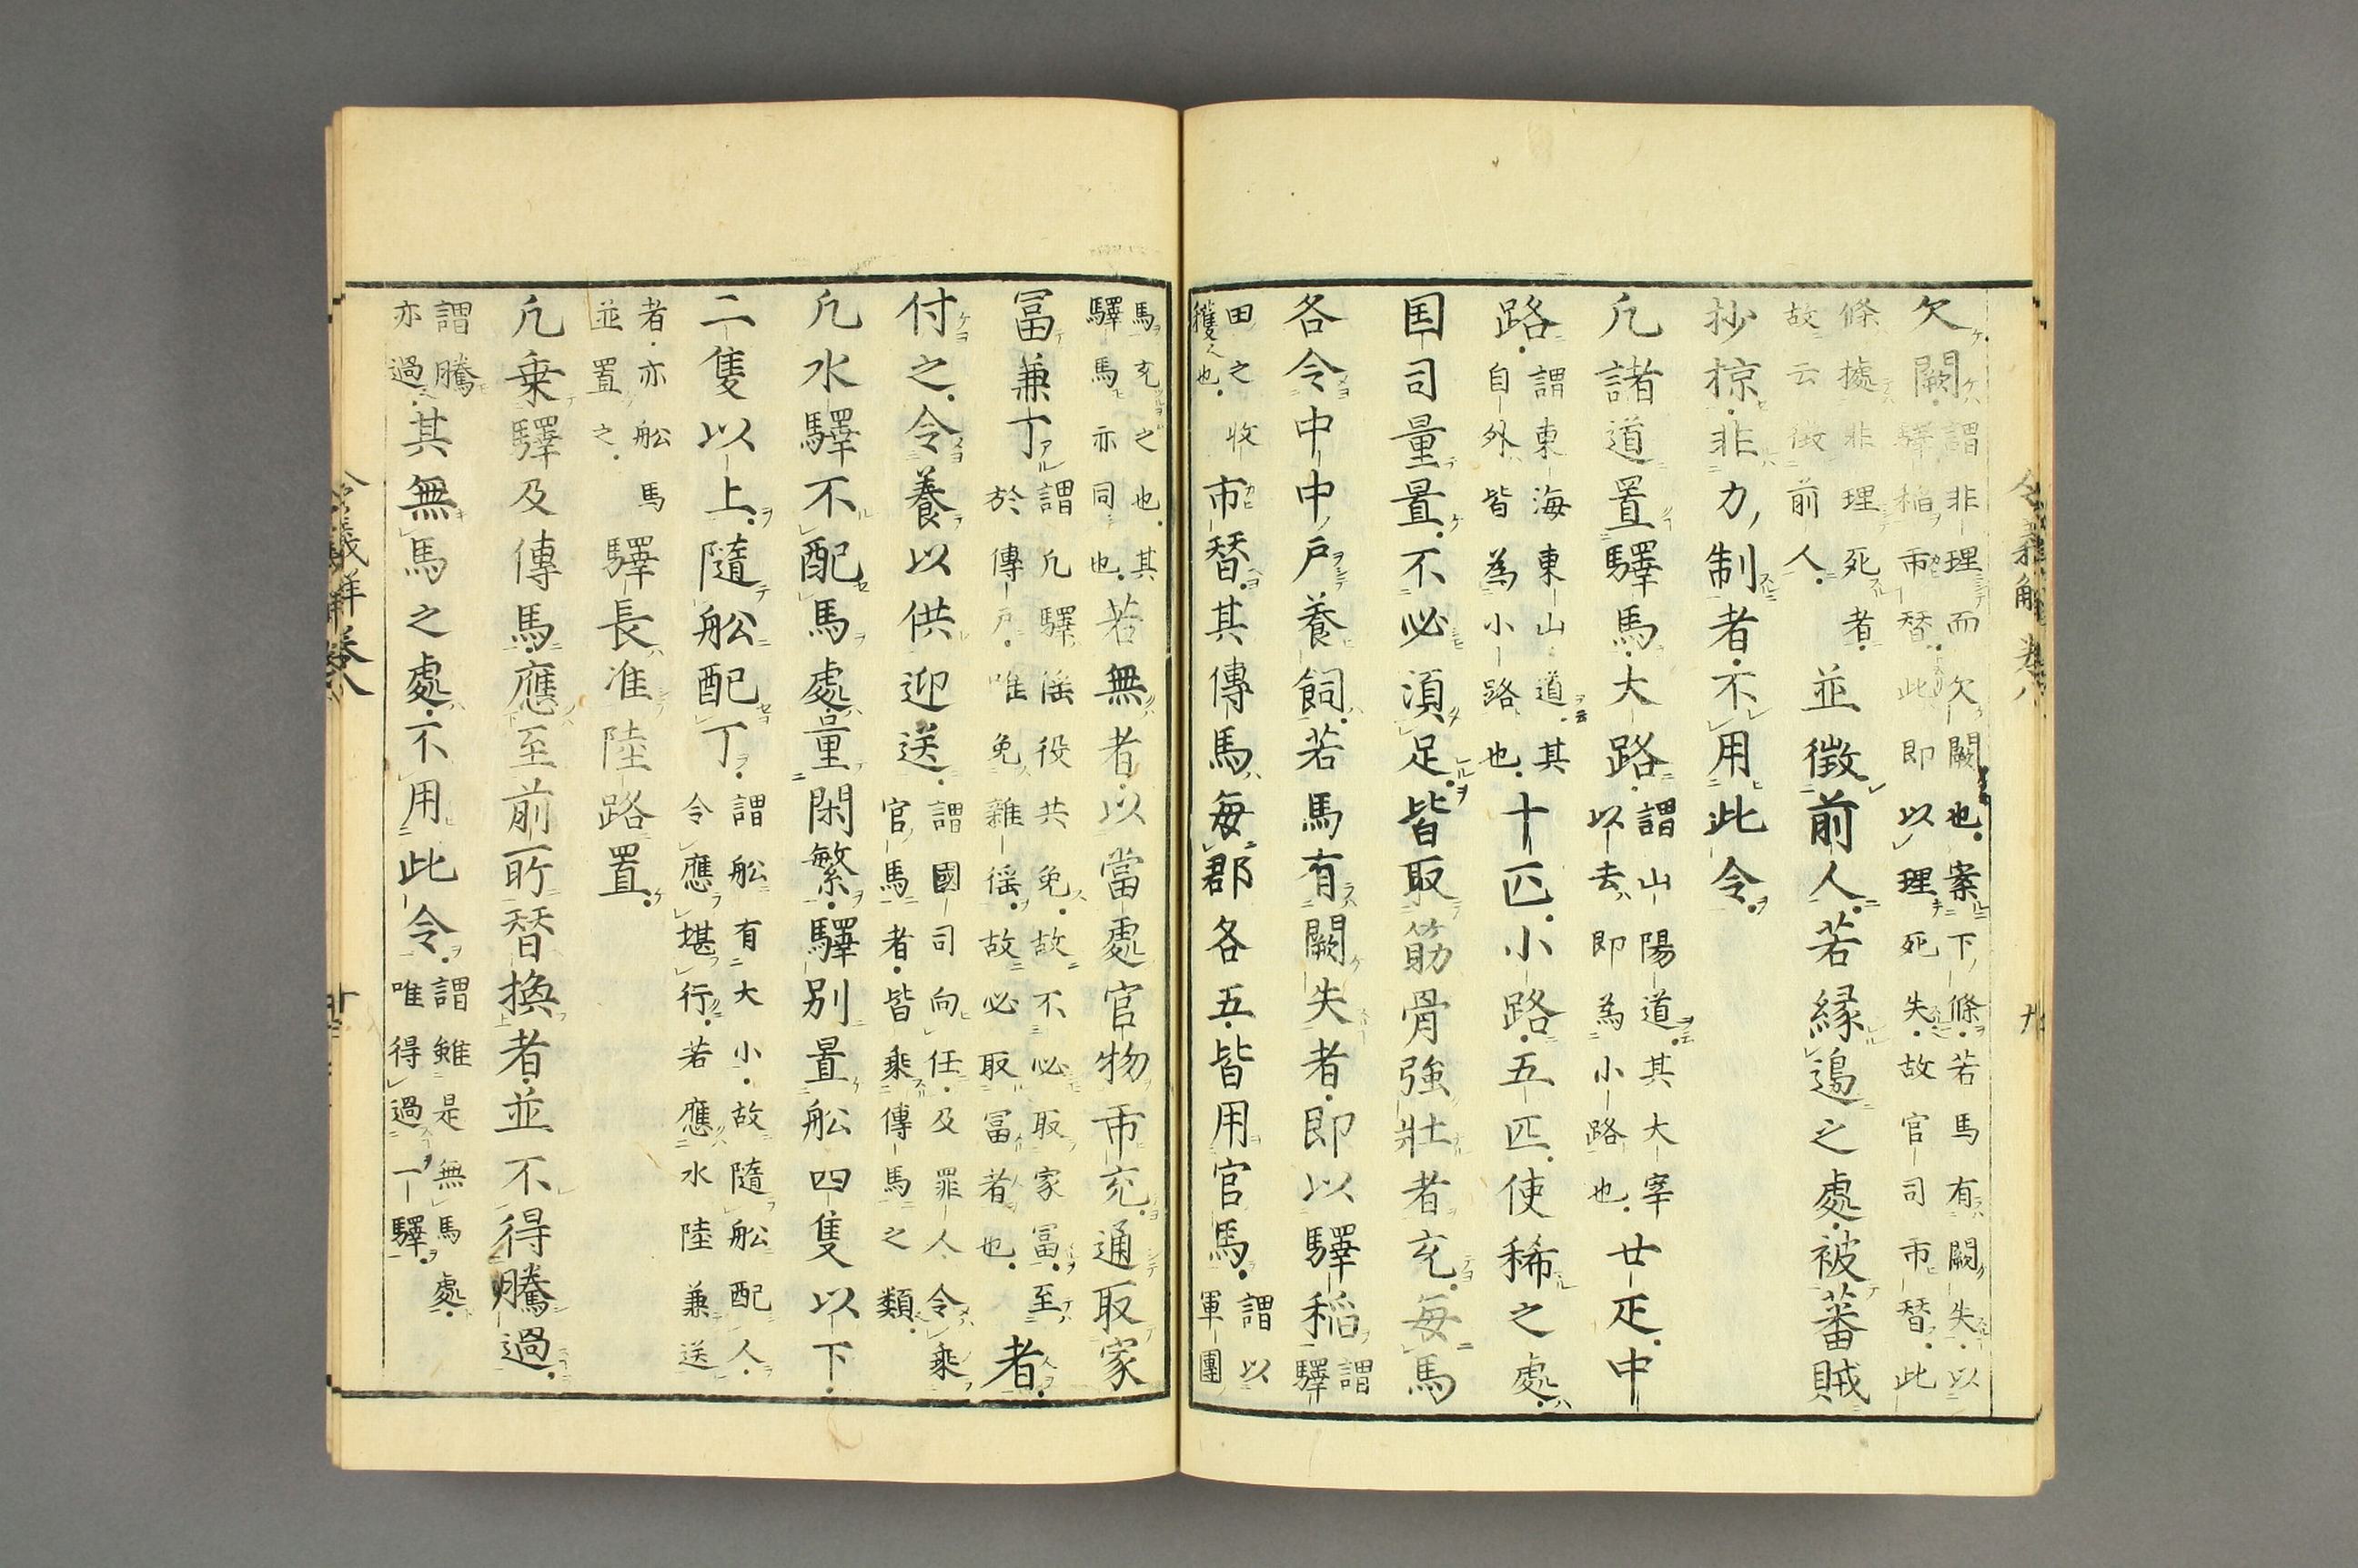 令義解 卷八 九
欠闕。謂非理而欠闕也。案下條。若馬有闕失。以驛稲市替。此即以理死失。故官司市替。此
條據非理死者。故云徴前人。並徴前人。若縁邊之處。被蕃賊
抄掠。非力制者。不用此令。
凢諸道置驛馬。大路。謂山陽道。其大宰以去。即為小路也。廿疋。中
路。謂東海東山道。其自外皆為小路也。十匹。小路。五匹。使稀之處。
国司量置。不必湏足。皆取筋骨強壮者充。毎馬
各令中中戸養飼。若馬有闕失者。即以驛稲謂驛
田之收穫也。市替。其傳馬毎郡各五。皆用官馬。謂以軍團
馬充之也。其驛馬亦同也。若無者。以當處官物市充。通取家
冨兼丁謂凢驛徭役共免。故不必取家冨。至於傳戸。唯免雜徭。故必取冨者也。者。
付之。令養以供迎送。謂國司向任。及罪人令乗官馬者。皆乗傳馬之類。
凢水驛不配馬處。量閑繁。驛別置舩四隻以下。
二隻以上。隨舩配丁。謂舩有大小。故隨舩配人。令應堪行。若應水陸兼送
者。亦舩馬並置之。驛長准陸路置。
凢乗驛及傳馬。應至前所替換者。並不得騰過。
謂騰亦過。其無馬之處。不用此令。謂雖是無馬處。唯得過一驛。
令義解 卷八 十